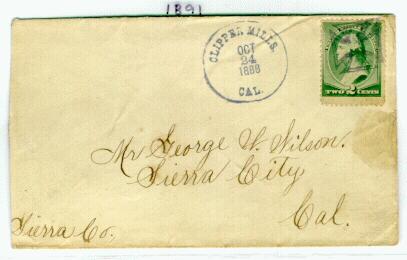 1891
CLIPPER MILLS.
OCT
24
1888
CAL.
TWO 2 CENTS
Mr George W. Wilson.
Sierra City
Cal.
Sierra Co.